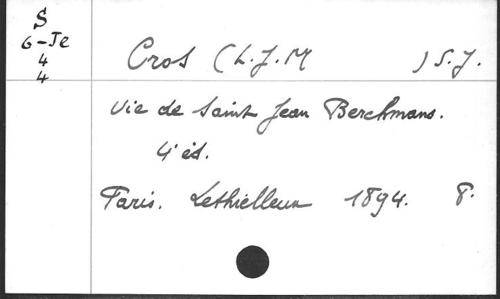 S
6-Je
4
4
Cros (L.J.M ) S.J.
Vie de Saint Jean Berchmans.
4e éd.
Paris. Lethielleux 1894. 8°.